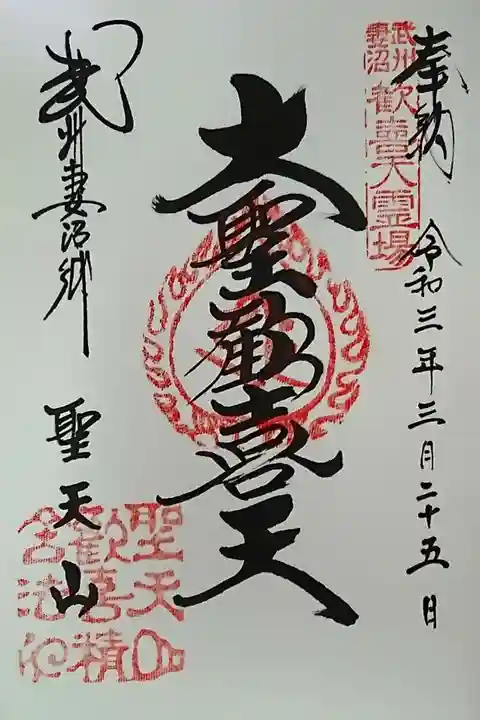 奉納 令和三年三月二十五日
武州
妻沼
歓喜天霊場
大聖歓喜天
武州妻沼郷 聖天山
聖天山
歓喜精